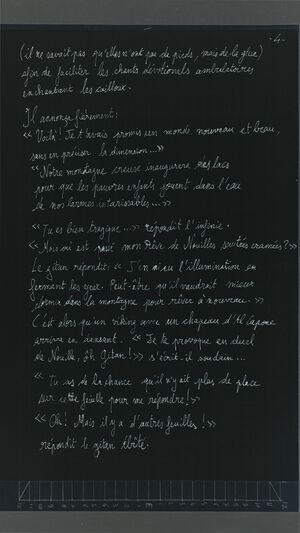 -4-
(il ne savait pas qu'elles n'ont pas de pieds, mais de la glue)
afin de faciliter les chants dévotionels ambulatoires
enchantant les cailloux.
Il annonça fièrement:
<< Voilà! Je t'avais promis un monde nouveau et beau,
sans en préciser la dimension...>>
<< Notre montagne creuse inaugurera ses lacs
pour que les pauvres enfants jouent dans l'eau
de nos larmes intarissables...>>
<< Tu es bien tragique...>> répondit l'infinie.
<< Mais où est mon rêve de Nouilles sautées cramées?>>
Le gitan répondit: << J'en ai eu l'illumination en
fermant les yeux. Peut-être qu'il vaudrait mieux
dormir dans la montagne pour rêver à nouveau. >>
C'est alors qu'un viking avec un chapeau d'Al Capone
arriva en dansant. << Je te provoque en duel
de Nouille, ôh Gitan! >> s'écrit-il soudain...
<< Tu as de la chance qu'il n'y ait plus de place
sur cette feuille pour me répondre!>>
<< Oh! Mais il y a d'autres feuilles!>>
répondit le gitan